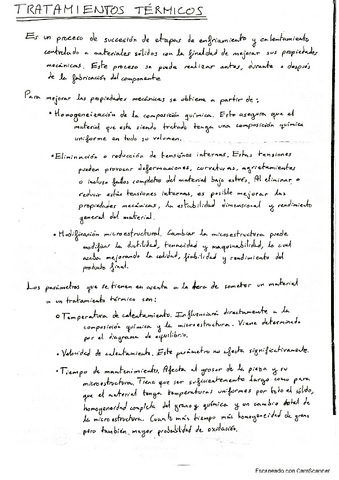 TRATAMIENTOS TÉRMICOS
Es un proceso de succeción de etapas de enfriamiento y calentamiento
controlado a materiales sólitos con la finalidad de mejorar sus propiedades
mecánicas. Este proceso se puede realizar antes, durante o después
de la fabricación del componente
Para mejorar las propiedades mecánicas se obtiene a partir de:
• Homogeneización de la composición química. Esto asegura que el
material que esta siendo tratado tenga una composición química
uniforme en todo su volumen.
• Eliminación o reducción de tensiones internas. Estas tensiones
pueden provocar deformaciones, curvaturas, agrietamientos
o incluso fallos completos del material bajo estrés. Al eliminar o
reducir estas tensiones internas, es posible mejorar las
propiedades mecánicas, la estabilidad dimensional y rendimiento
general del material.
• Modificación microestructural. Cambiar la microestructura puede
modificar la ductilidad, tenacidad y maquinabilidad, lo cual
acaba mejorando la calidad, fiabilidad y rendimiento del
producto final.
Los parámetros que se tienen en cuenta a la hora de someter un material
a un tratamiento térmico son:
• Temperatura de calentamiento. Influenciará directamente a la
composición química y la microestructura. Viene determinado
por el diagrama de equilibrio.
• Velocidad de calentamiento. Este parámetro no afecta significativamente.
• Tiempo de mantenimiento. Afecta al grosor de la pieza y su
microestructura. Tiene que ser suficientemente largo como para
que el material tenga temperaturas uniformes por todo el sólido,
homogeneidad completa del grano y química y un cambio total de
la microestructura. Cuanto más tiempo más homogeneidad de grano
pero también mayor probabilidad de oxidación.
Escaneado con CamScanner